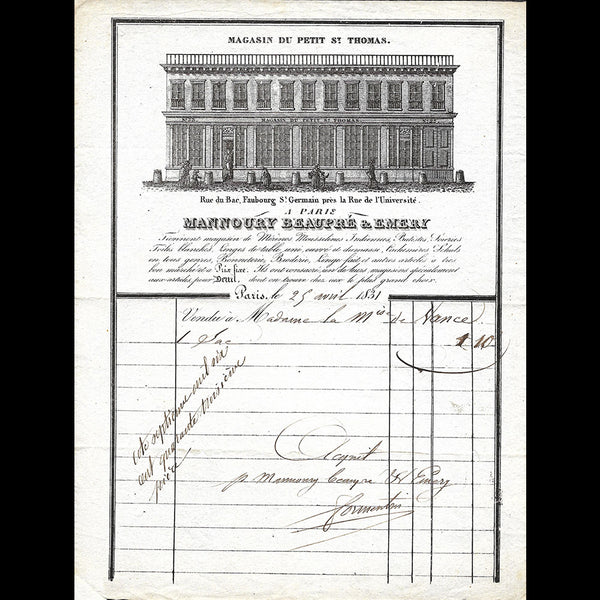 MAGASIN DU PETIT St. THOMAS.
MAGASIN DU PETIT St THOMAS.
Rue du Bac, Faubourg St. Germain près la Rue de l'Université.
A PARIS
MANNOURY BEAUPRÉ & EMERY
Tiennent magasin de Mérinos Mousselines Indiennes, Batistes, Soieries
Toiles blanches, Linges de table, uni, ouvré et damassé, Cachemires Schals
en tous genres, Bonneterie, Broderie, Linge fait et autres articles à très
bon marché et à Prix fixe. Ils ont consacré un de leurs magasins spécialement
aux articles pour Deuil, dont on trouve chez eux le plus grand choix.
Paris, le 25 avril 1831
Vendu à Madame la Mise de Nance
1 Sac 1 10
cote septieme mil six
cent quarante troisième
pièce
Acquit
p. Mannoury Beaupré & Emery